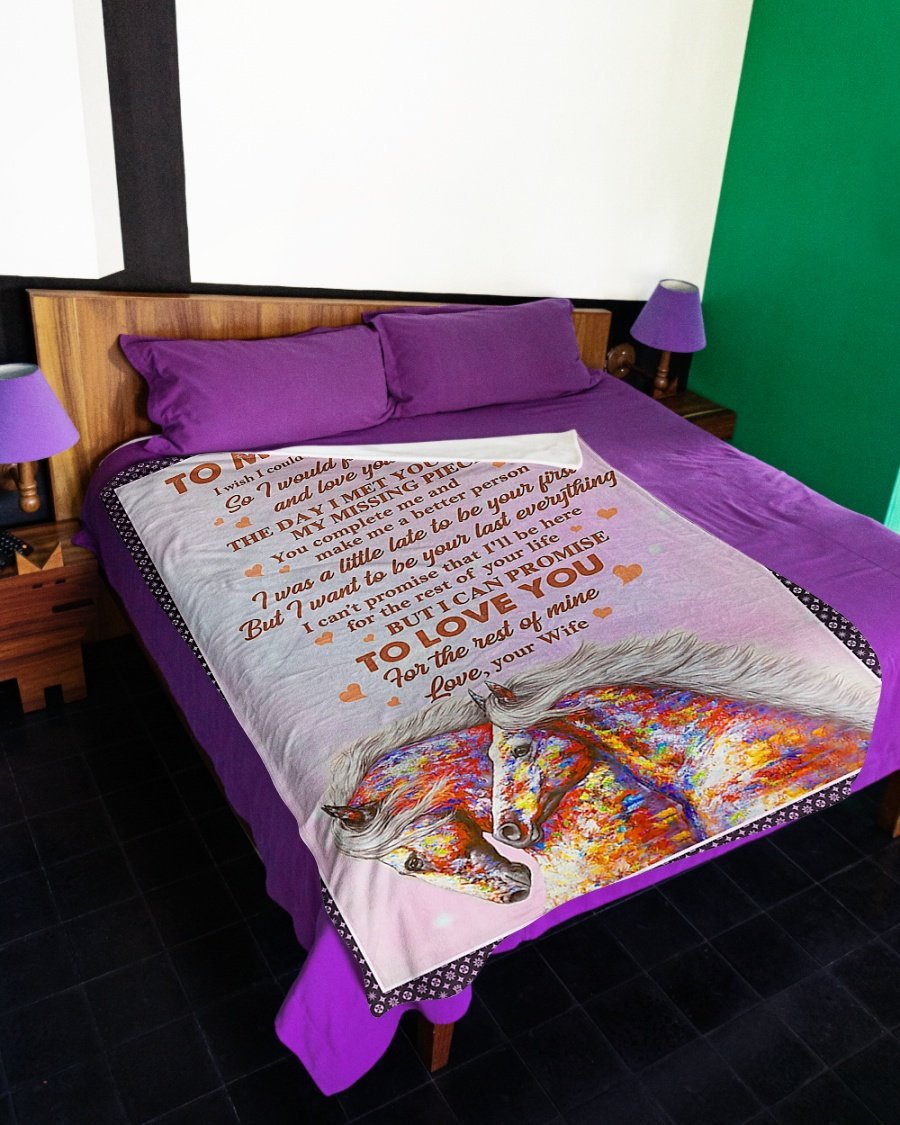 TO M
I wish I could
So I would f
and love you
THE DAY I MET YOU
MY MISSING PIEC
You complete me and
make me a better person
I was a little late to be your first
But I want to be your last everything
I can't promise that I'll be here
for the rest of your life
BUT I CAN PROMISE
TO LOVE YOU
For the rest of mine
Love, your Wife